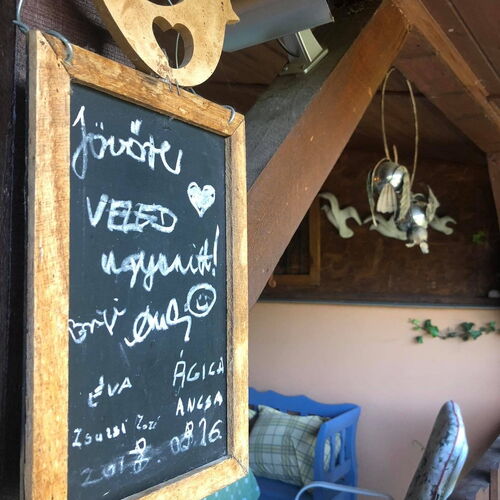 Jövőre
VELED
ugyanitt!
ÉVA
ÁGICA
ANCSA
Zsuzsi Zozi
2018. 08. 26.